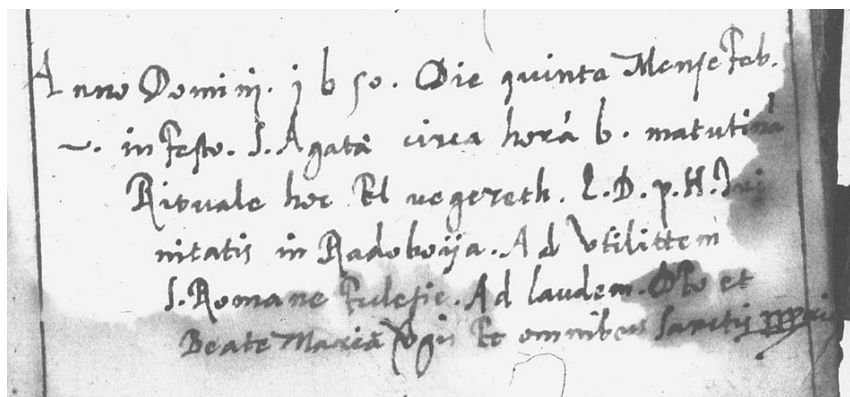 Anno Dominj. j b 50. Die quinta Mense Feb.
in Festo. S. Agatã circa horã b. matutinã
Rituale hoc El vegezeth. L. D. p. H. Tri
nitatis in Radoboija. Ad Vtilittem
S. Romane Ecclesie. Ad laudem. Oto et
Beate Mariã Vgis Et omnibus Sanctis